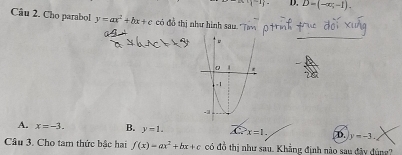 D. D=(-∞;-1).
Câu 2. Cho parabol y = ax² + bx + c có đồ thị như hình sau. Tìm ptrình trục đối xứng
y
O 1
-1
-3
A. x = -3. B. y = 1. C. x = 1. D. y = -3.
Câu 3. Cho tam thức bậc hai f(x) = ax² + bx + c có đồ thị như sau. Khẳng định nào sau đây đúng?